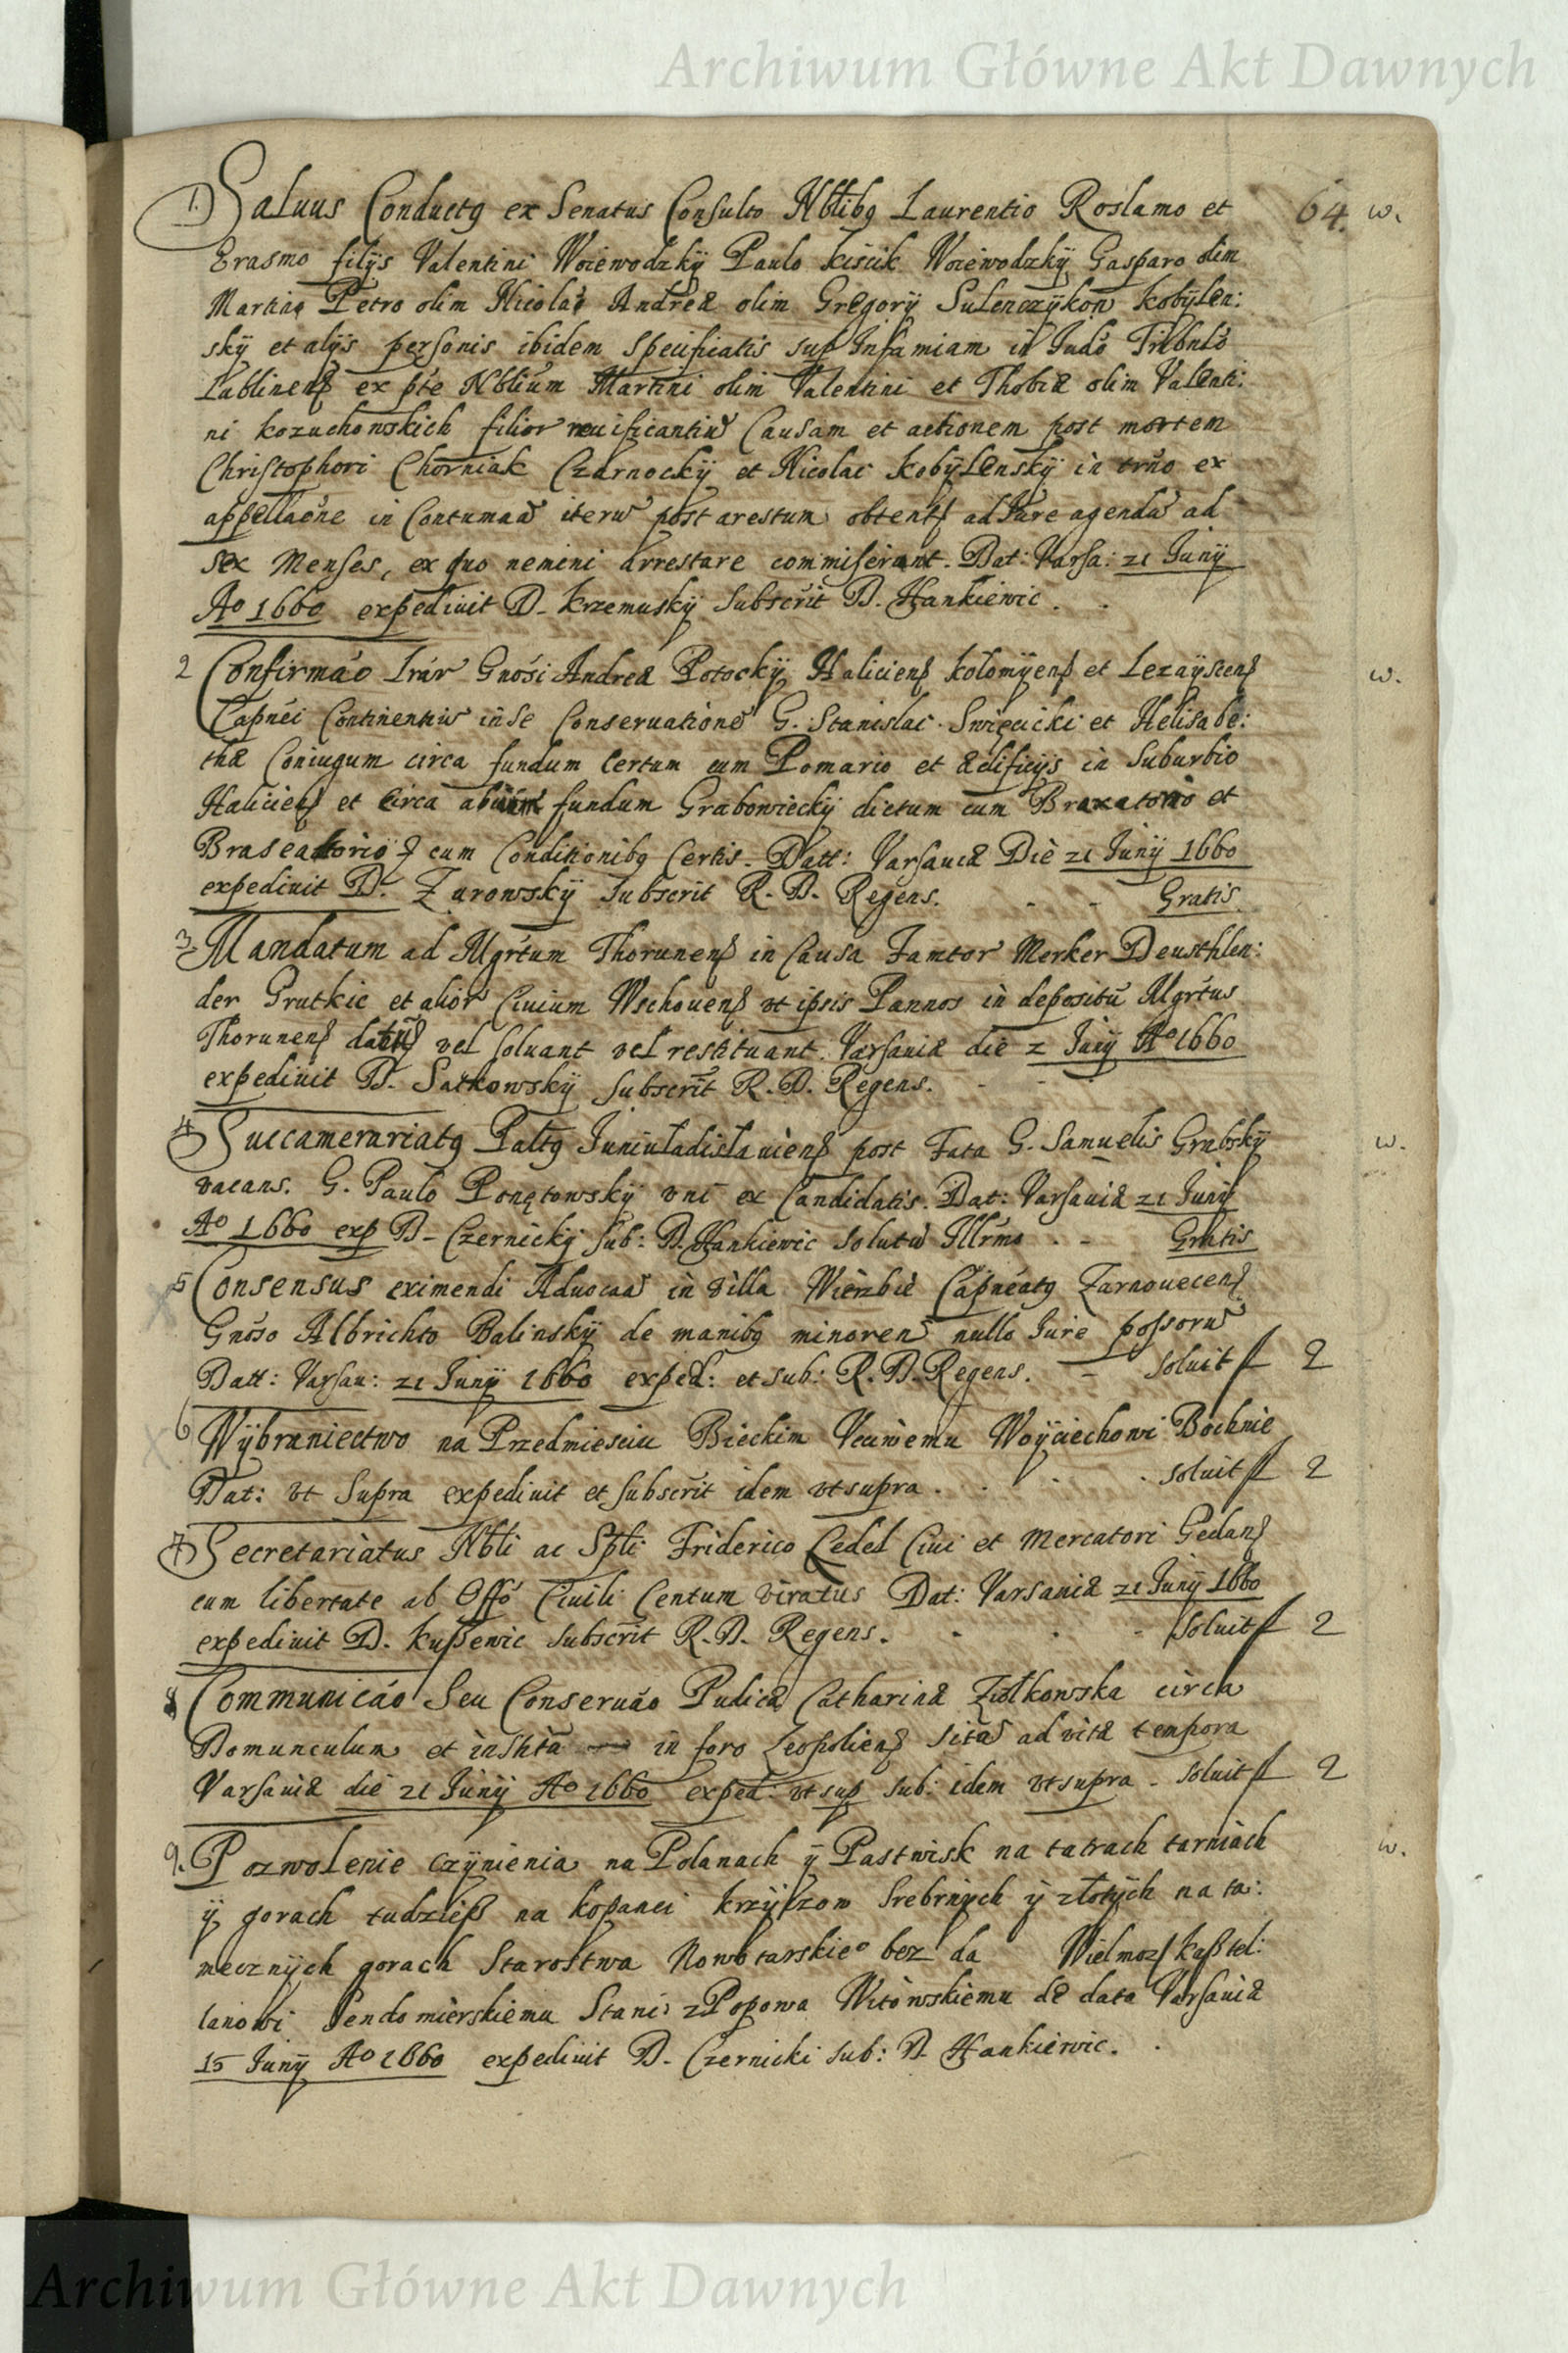 Archiwum Główne Akt Dawnych
64. w.
1. Saluus Conductg ex Senatus Consulto Nblibg Laurentio Roslamo et
Erasmo filijs Valentini Woiewodzkÿ Paulo Kiścik Woiewodzkÿ Gasparo olim
Martino Petro olim Nicolao Andreæ olim Gregorÿ Sulenczÿkow Kobÿlen:
skÿ et alÿs personis ibidem specificatis sup Infamiam in Judõ Tribnlõ
Lublinens ex pte Nblium Martini olim Valentini et Thobiæ olim Valenti:
ni Kozuchowskich filior Causam et actionem post mortem
Christophori Chorniak Czarnockÿ et Nicolai Kobÿlenskÿ in trño ex
appellaõne in Contumaã iterũ post arestum obtent ad Jure agendũ ad
sex Menses, ex quo nemini arrestare commiserant. Dat: Varsa: 21 Junÿ
Ao 1660 expediuit D. Krzemuskÿ Subscrit D. Hankiewic.
2 Confirmão Lrar Gnosi Andreæ Potockÿ Haliciens Kołomÿens et Lezaÿscens w.
Capnei Continentiũ in se Conseruationẽ G. Stanislai Swięcicki et Helisabe:
thæ Coniugum circa fundum Certum cum Pomario et ædificÿs in Suburbio
Haliciens et Circa fundum Grabowieckÿ dictum cum Braxatorio et
Braseatorio cum Conditionibg Certis. Datt: Varsauiæ Die 21 Junÿ 1660
expediuit D. Zurowskÿ Subscrit R. D. Regens. - - Gratis
3 Mandatum ad Mgrtum Thorunens in Causa Famtor Merker Deusthlen:
der Grutkie et alior Ciuium Wschouens vt ipsis Pannos in depositũ Mgrtus
Thorunens datũ vel soluant vel restituant. Varsauiæ die 2 Junÿ Ao 1660
expediuit D. Satkowskÿ Subscrit R. D. Regens. - -
4 Succamerariatg Paltg Juniuladislauiens post Fata G. Samuelis Grabskÿ w.
vacans. G. Paulo Ponętowskÿ vni ex Candidatis. Dat: Varsauiæ 21 Junÿ
Ao 1660 exp D. Czernickÿ Sub: D. Hankiewic solutũ Illrmo . - Gratis
5 Consensus eximendi Aduocaã in villa Wierzbie Capneatg Zarnouecens
Gnoso Albrichto Balinskÿ de manibg minoren nullo Jure possorũ
Datt: Varsau: 21 Junÿ 1660 exped: et sub: R. D. Regens. - soluit f 2
6 Wÿbraniectwo na Przedmiesciu Bieckim Vcciwemu Woÿciechowi Bochnie
Dat: vt Supra expediuit et subscrit idem vt supra . . . soluit f 2
7 Secretariatus Nbli ac Spli Friderico Cedel Ciui et Mercatori Gedans
cum libertate ab Offo Ciuili Centum viratus Dat: Varsauiæ 21 Junÿ 1660
expediuit D. Kupewic subscrit R. D. Regens. . . - soluit f 2
8 Communicão seu Conseruão Pudicæ Catharinæ Ziołkowska circa
Domunculum et in foro Leopoliens sitã ad vitæ tempora
Varsauiæ die 21 Junÿ Ao 1660 exped: vt sup sub: idem vt supra . soluit f 2
9. Pozwolenie czÿnienia na Polanach ÿ Pastwisk na tatrach tarniach w.
ÿ gorach tudzieß na kopanei krzÿszow srebrnÿch ÿ złotÿch na ta:
mecznÿch gorach Starostwa Nowotarskieo bez da Wielmoz Kaßtel:
lanowi Sendomierskiemu Stani: z Popowa Witowskiemu de data Varsauiæ
15 Junÿ Ao 1660 expediuit D. Czernicki sub: D Hankiewic. .
Archiwum Główne Akt Dawnych